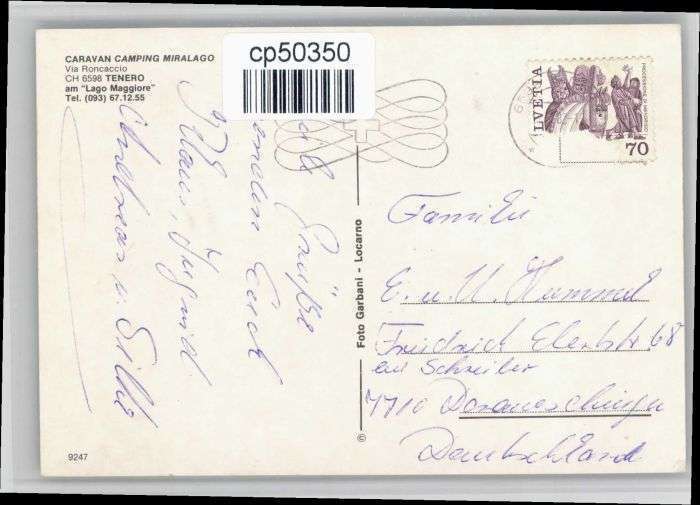 CARAVAN CAMPING MIRALAGO
Via Roncaccio
CH 6598 TENERO
am "Lago Maggiore"
Tel. (093) 67.12.55
cp50350
HELVETIA
70
Grüße
senden Euch
Klaus, Ingrid
Andreas u. Silke
Foto Garbani - Locarno
©
Familie
E. u. U. Hummel
Friedrich Ebertstr. 68
bei Schreiber
7710 Donaueschingen
Deutschland
9247